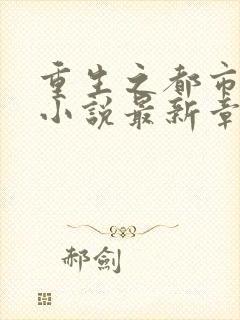 重生之都市
小说最新章
郝剑